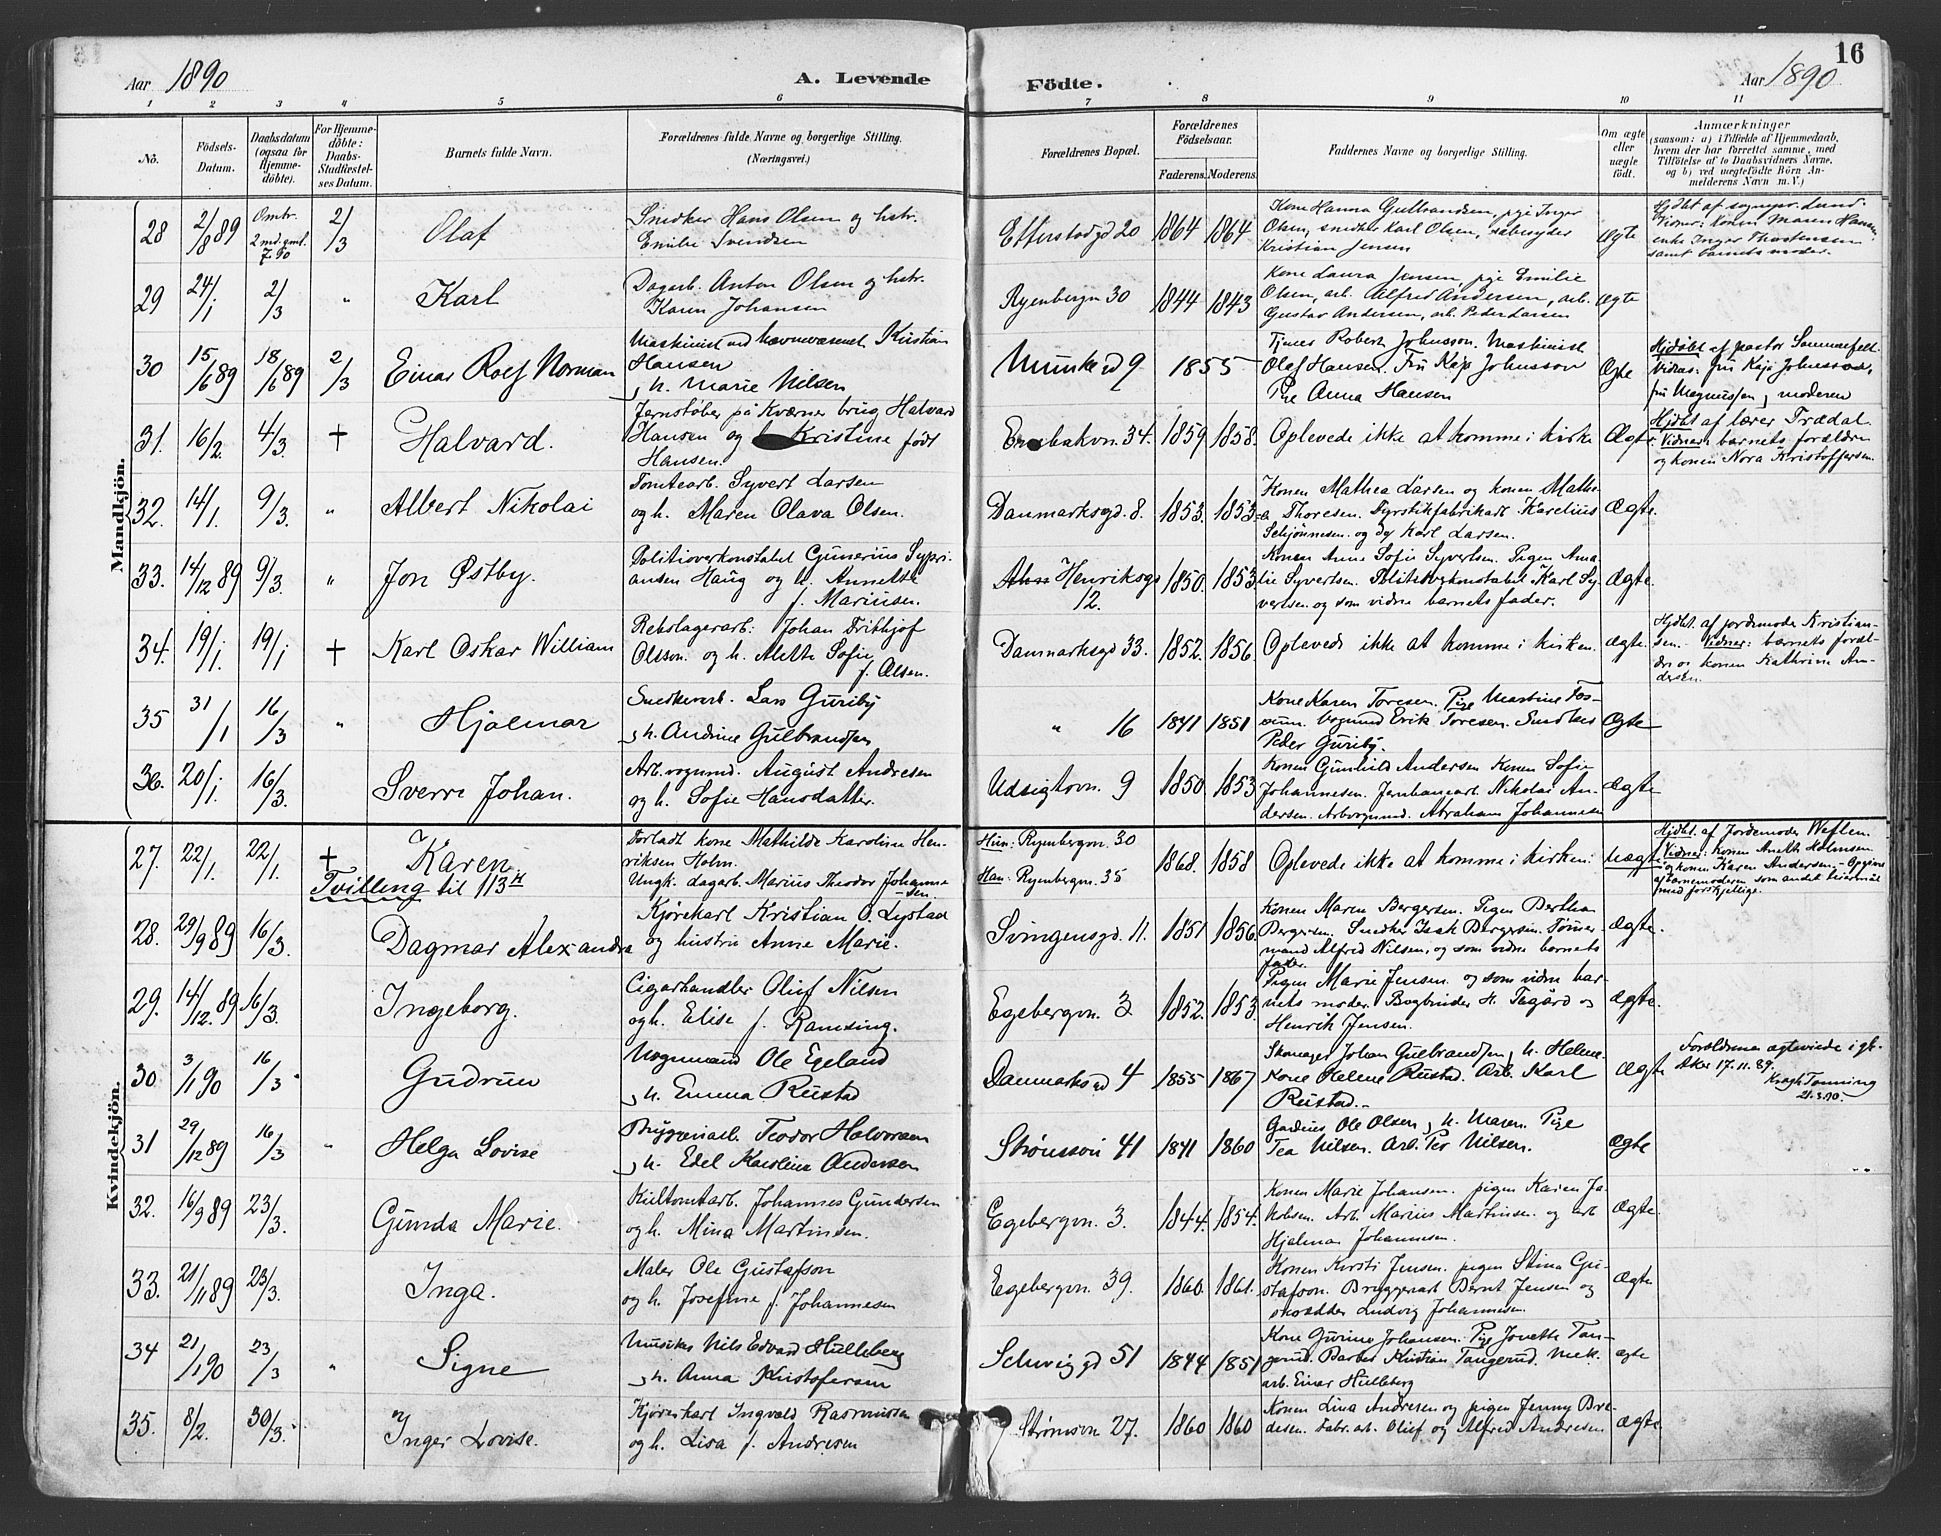 16
Aar 1890
A. Levende
Födte.
Aar 1890
1 2 3 4 5 6 7 8 9 10 11
No.
Födsels-
Datum.
Daabsdatum
(ogsaa for
Hjemme-
döbte).
For Hjemme-
döbte:
Daabs-
Stadfæstel-
ses Datum.
Barnets fulde Navn.
Forældrenes fulde Navne og borgerlige Stilling.
(Næringsvei.)
Forældrenes Bopæl.
Forældrenes
Födselsaar.
Faderens. Moderens.
Faddernes Navne og borgerlige Stilling.
Om ægte
eller
uægte
födt.
Anmærkninger
(saasom: a) i Tilfælde af Hjemmedaab,
hvem der har forrettet samme, med
Tilföielse af to Daabsvidners Navne,
og b) ved uægtefödte Börn An-
melderens Navn m. V.)
Mandkjön.
28 2/8 89 2/3 Olaf
Snedker Hans Olsen og hstr.
Emilie Svendsen
Etterstadgd 20 1864 1864
Kone Hanna Gulbrandsen, pige Inger
Olsen, snedker Karl Olsen, sæbesyder
Kristian Jensen
ægte
samt barnets moder.
29 24/1 2/3 " Karl
Dagarb. Anton Olsen og hstr.
Karen Johansen
Ryenbergvn 30 1844 1843
Kone Laura Jensen, pige Emilie
Olsen, arb. Alfred Andersen, arb.
Gustav Andersen, arb. Peder Larsen
ægte
30 15/6 89 18/6 89 2/3 Einar Rolf Norman
Maskinist ved havnevæsenet Kristian
Hansen
, h. Marie Nilsen
Munkegd 9 1855
Robert Johnsson. Maskinist
Olaf Hansen. Fru Kaja Johnsson
Pige Anna Hansen
Ægte
Hjdøbt af pastor Sommerfelt
Vidner: fru Kaja Johnsson,
fru Magnussen, moderen
31. 16/2. 4/3. † Halvard.
Jernstøber på Kværner brug Halvard
Hansen og Kristine født
Hansen.
Enebakvn. 34. 1859 1858. Oplevede ikke at komme i kirke Ægte.
Hjdbt af lærer Trædal.
Vidner: barnets forældre
og konen Nora Kristoffersen.
32. 14/1. 9/3. " Albert Nikolai
Tomtearb. Syvert Larsen
og h. Maren Olava Olsen.
Danmarksgd. 8. 1853. 1853.
Konen Mathea Larsen og konen Mathe-
a Thoresen. Fyrstikfabrikarb. Karelius
Schjønnesen. og do Karl Larsen.
Ægte.
33. 14/12 89 9/3. " Jon Østby.
Politioverkonstabel Gunerius Sypri-
ansen Haug og h. Annette
f. Mariusen.
Henriksgd
12.
1850. 1853.
Konen Anne Sofie Syvertsen. Pigen Ama-
lie Syvertsen. Politiovkonstabel Karl Sy-
vertsen. og som vidne barnets fader.
Ægte.
34. 19/1. 19/1 † Karl Oskar William
Rebslagerarb: Johan Frithjof
Olsson. og h. Alette Sofie
f. Olsen.
Danmarksgd 33. 1852. 1856. Oplevede ikke at komme i kirken. ægte.
Hjdbt. af jordemoder Kristian-
sen. Vidner: barnets foræl-
dre og konen Kathrine An-
dersen.
35 31/1 16/3 " Hjalmar
Snedkerarb. Lars Guriby
, h. Andrine Gulbrandsen
" 16 1841 1851
Kone Karen Toresen. Pige Martine Fos-
sum. Vognmd Erik Toresen. Snedker
Peder Guriby.
Ægte
36. 20/1. 16/3. Sverre Johan.
Arb.vognmd. August Andresen
og h. Sofie Hansdatter.
Udsigtsvn. 9 1850. 1853
Konen Gunhild Andersen Konen Sofie
Johannesen. Jernbanearb. Nikolai An-
dersen. Arbvognmd. Abraham Johannesen
ægte
Kvindekjön.
27. 22/1. 22/1. † Karen.
Tvilling til 113
Forladt kone Mathilde Karoline Hen-
riksen Holm.
Ungk. dagarb. Marius Theodor Johanne-
sen.
Hun: Ryenbergvn. 30
Han: Ryenbergvn. 35
1868. 1858 Oplevede ikke at komme i kirken: Uægte
Hjdbt. af Jordemoder Weflen.
Vidner: konen Anette Halmsen
og konen Karen Andersen. – Opgivet
af barnemoderen som andet leiermål
med forskjellige.
28. 29/9 89 16/3. Dagmar Alexandra
Kjørekarl Kristian O. Lystad
og hustru Anne Marie.
Svingensgd. 11. 1851 1856.
Konen Maren Bergersen. Pigen Berthan
Bergersen. Snedker Isak Bergersen. Tømer-
mand Alfred Nilsen, og som vidne barnets
fader.
ægte.
29. 14/12. 89 16/3. Ingeborg.
Cigarhandler Oluf Nilsen
og h. Elise f. Ramsing.
Egebergvn. 3 1852. 1853.
Pigen Marie Jensen. og som vidne bar-
nets moder. Bogbinder H. Tegard og
Henrik Jensen.
ægte.
30 3/1 90 16/3 Gudrun
Vognmand Ole Egeland
, h. Emma Rustad
Danmarksgd 4 1855 1867
Skomager Johan Gulbrandsen, h. Helene.
Kone Helene Rustad. Arb. Karl
Rustad.
ægte
Forældrene ægteviede i gl.
Aker 17.11.89.
Kragh Tonning
21.3.90.
31 29/12 89 16/3 " Helga Lovise
Bryggeriarb. Teodor Halvorsen
, h. Edel Karoline Andersen
Strømsvei 41 1841 1860
Ole Olsen, h. Maren. Pige
Tea Nilsen. Arb. Per Nilsen.
ægte
32. 16/9 89 23/3. Gunda Marie.
Kultomtarb. Johannes Gundersen
og h. Mina Martinsen.
Egebergvn. 3. 1844. 1854.
Konen Marie Johansen. pigen Karen Ja-
kobsen. Arb. Marius Martinsen. og arb
Hjalmar Johannesen.
ægte.
33. 21/11 89 23/3. Inga.
Maler Ole Gustafson
og h. Josefine f. Johannesen
Egebergvn. 39. 1860. 1861.
Konen Kirsti Jensen. pigen Stina Gu-
stafson. Bryggeriarb Bernt Jensen og
Ludvig Johannesen.
ægte.
34 21/1 90 23/3 " Signe
Musiker Nils Edvard Hulleberg
, h. Anna Kristofersen
Schweigd 51 1844 1851
Kone Gurine Johansen. Pige Jonette Tan-
gerud. Barber Kristian Tangerud. Mek.
arb. Einar Hulleberg
ægte
35. 8/2. 30/3. Inger Lovise.
Kjørerkarl Ingvald Rasmussen
og h. Lisa f. Andresen
Strømsvn 27. 1860 1860
Konen Lina Andresen og pigen Jenny Bre-
desen. Fabr.arb. Oluf og Alfred Andresen
ægte.